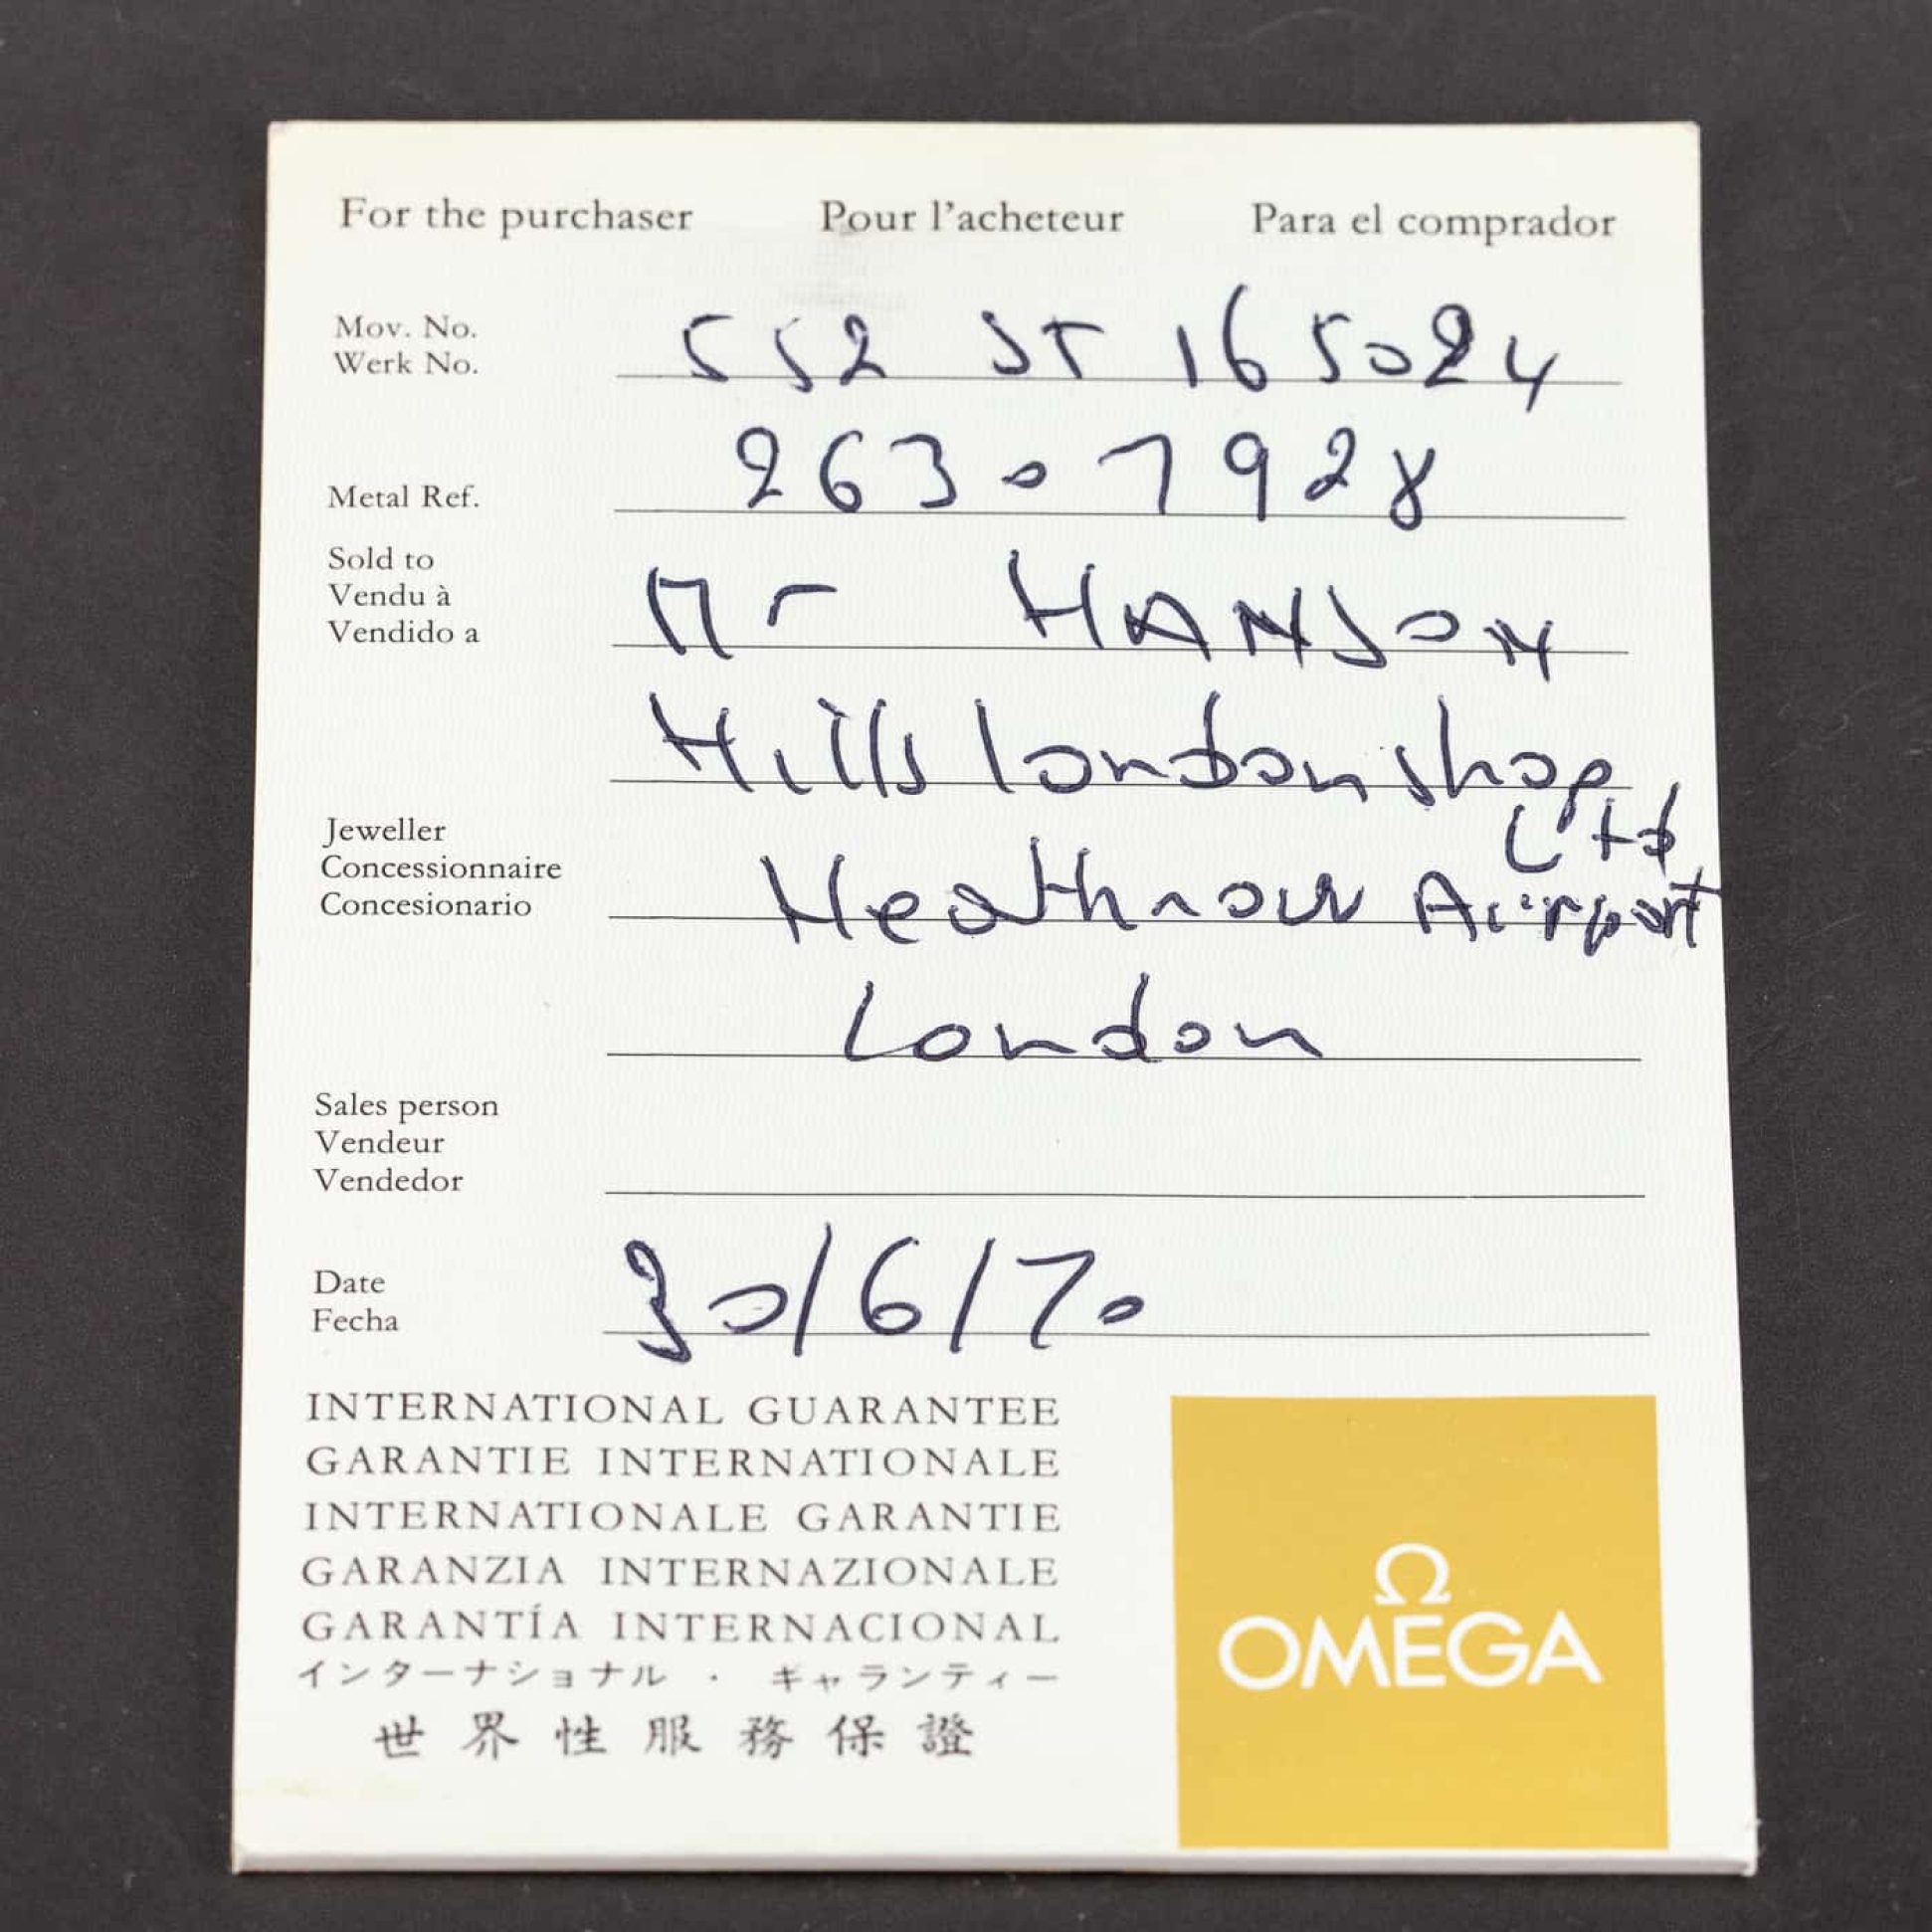 For the purchaser Pour l'acheteur Para el comprador
Mov. No. 552 ST 165024
Werk No.
Metal Ref. 26307928
Sold to
Vendu à Mr HANSON
Vendido a
Hills london shop
Ltd
Jeweller
Concessionnaire Heathrow Airport
Concesionario
London
Sales person
Vendeur
Vendedor
Date 30/6/70
Fecha
INTERNATIONAL GUARANTEE
GARANTIE INTERNATIONALE
INTERNATIONALE GARANTIE
GARANZIA INTERNAZIONALE
GARANTÍA INTERNACIONAL
インターナショナル · ギャランティー
世界性服務保證
Ω
OMEGA